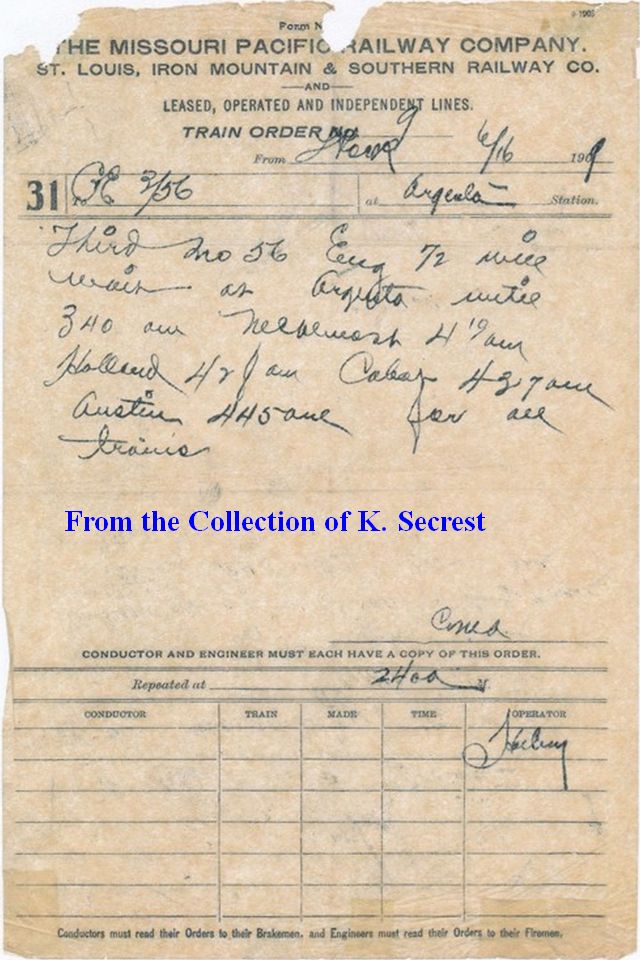 Form N
9-1905
THE MISSOURI PACIFIC RAILWAY COMPANY.
ST. LOUIS, IRON MOUNTAIN & SOUTHERN RAILWAY CO.
—AND—
LEASED, OPERATED AND INDEPENDENT LINES.
TRAIN ORDER No. 9
From 6/16 1909
31 To C&E 3/56 at Argenta Station.
Third No 56 Eng 72 will
wait at Argenta until
340 am 4 10 am
Holland 42 am Cabot 437 am
Austin 445 am for all
trains
From the Collection of K. Secrest
CONDUCTOR AND ENGINEER MUST EACH HAVE A COPY OF THIS ORDER.
Repeated at M.
CONDUCTOR TRAIN MADE TIME OPERATOR
Conductors must read their Orders to their Brakemen, and Engineers must read their Orders to their Firemen.